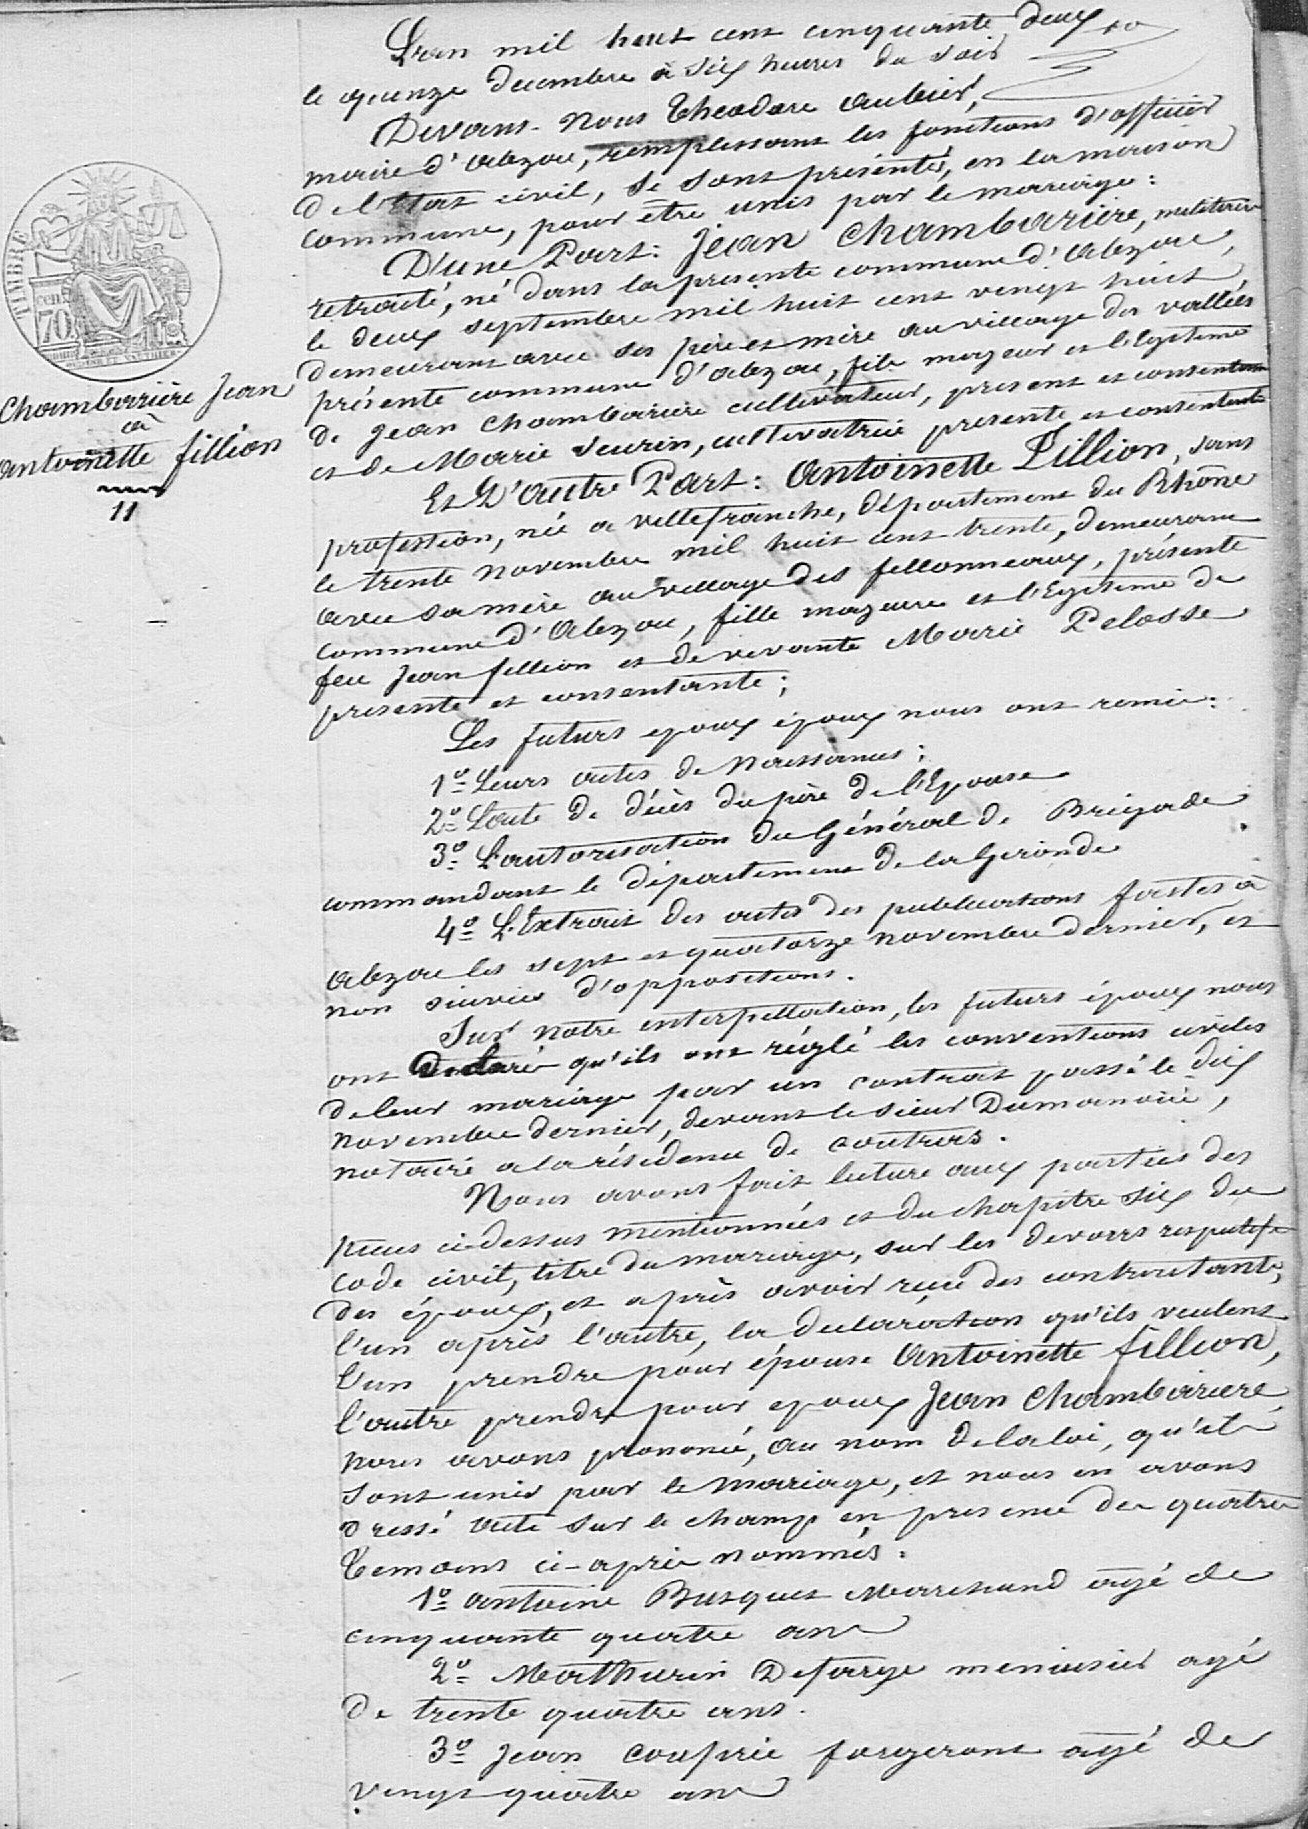 L'an mil huit cent cinquante deux
le quinze decembre à six heures du soir
Devans Nous Theodore Aubier,
maire d'Abzac, remplissant les fonctions d'officier
de l'Etat civil, se sont présentés, en la maison
commune, pour être unis par le mariage:
D'une Part: Jean Chambarière, militaire
retraité, né dans la présente commune d'Abzac,
le deux septembre mil huit cent vingt huit,
demeurant avec ses père et mère au village des vallées
présente commune d'Abzac, fils majeur et légitime
de Jean Chambariere cultivateur, present et consentant
et de Marie Seurin, cultivatrice presente et consentente
Et D'autre Part: Antoinette Fillion, sans
profession, née a villefranche, département du Rhône
le trente novembre mil huit cent trente, demeurant
avec sa mère au village des fellonneaux, présente
commune d'Abzac, fille majeure et légitime de
feu Jean fillion et de vivante Marie Pelosse
presente et consentante;
Les futurs epoux epoux nous ont remis:
1º Leurs actes de Naissances;
2º L'acte de décès du père de l'Epouse
3º L'autorisation du Général de Brigade
commandant le département de la Gironde
4º L'Extrait des actes des publications faites à
Abzac les sept et quatorze novembre dernier, et
non suivies d'oppositions.
Sur notre interpellation, les futurs époux nous
ont declaré qu'ils ont réglé les conventions civiles
de leur mariage par un contrat passé le dix
novembre dernier, devant le sieur Dumanoir,
notaire a la résidence de coutras.
Nous avons fait lecture aux parties des
pieces ci-dessus mentionnées et du chapitre six du
code civil, titre du mariage, sur les devoirs respectifs
des époux, et après avoir recu des contractants,
l'un après l'autre, la déclaration qu'ils veulent
l'un prendre pour épouse Antoinette fillion,
l'autre prendre pour epoux Jean Chambariere,
nous avons prononcé, au nom de la loi, qu'ils
sont unis par le mariage, et nous en avons
dressé acte sur le champ en presence des quatre
temoins ci-après nommés:
1º Antoine Busquet Marchand agé de
cinquante quatre ans
2º Mathurin Defarge menuisier agé
de trente quatre ans.
3º Jean Couprie forgeront agé de
vingt quatre ans
TIMBRE
70
Chambarrière Jean
à
Antoinette fillion
11